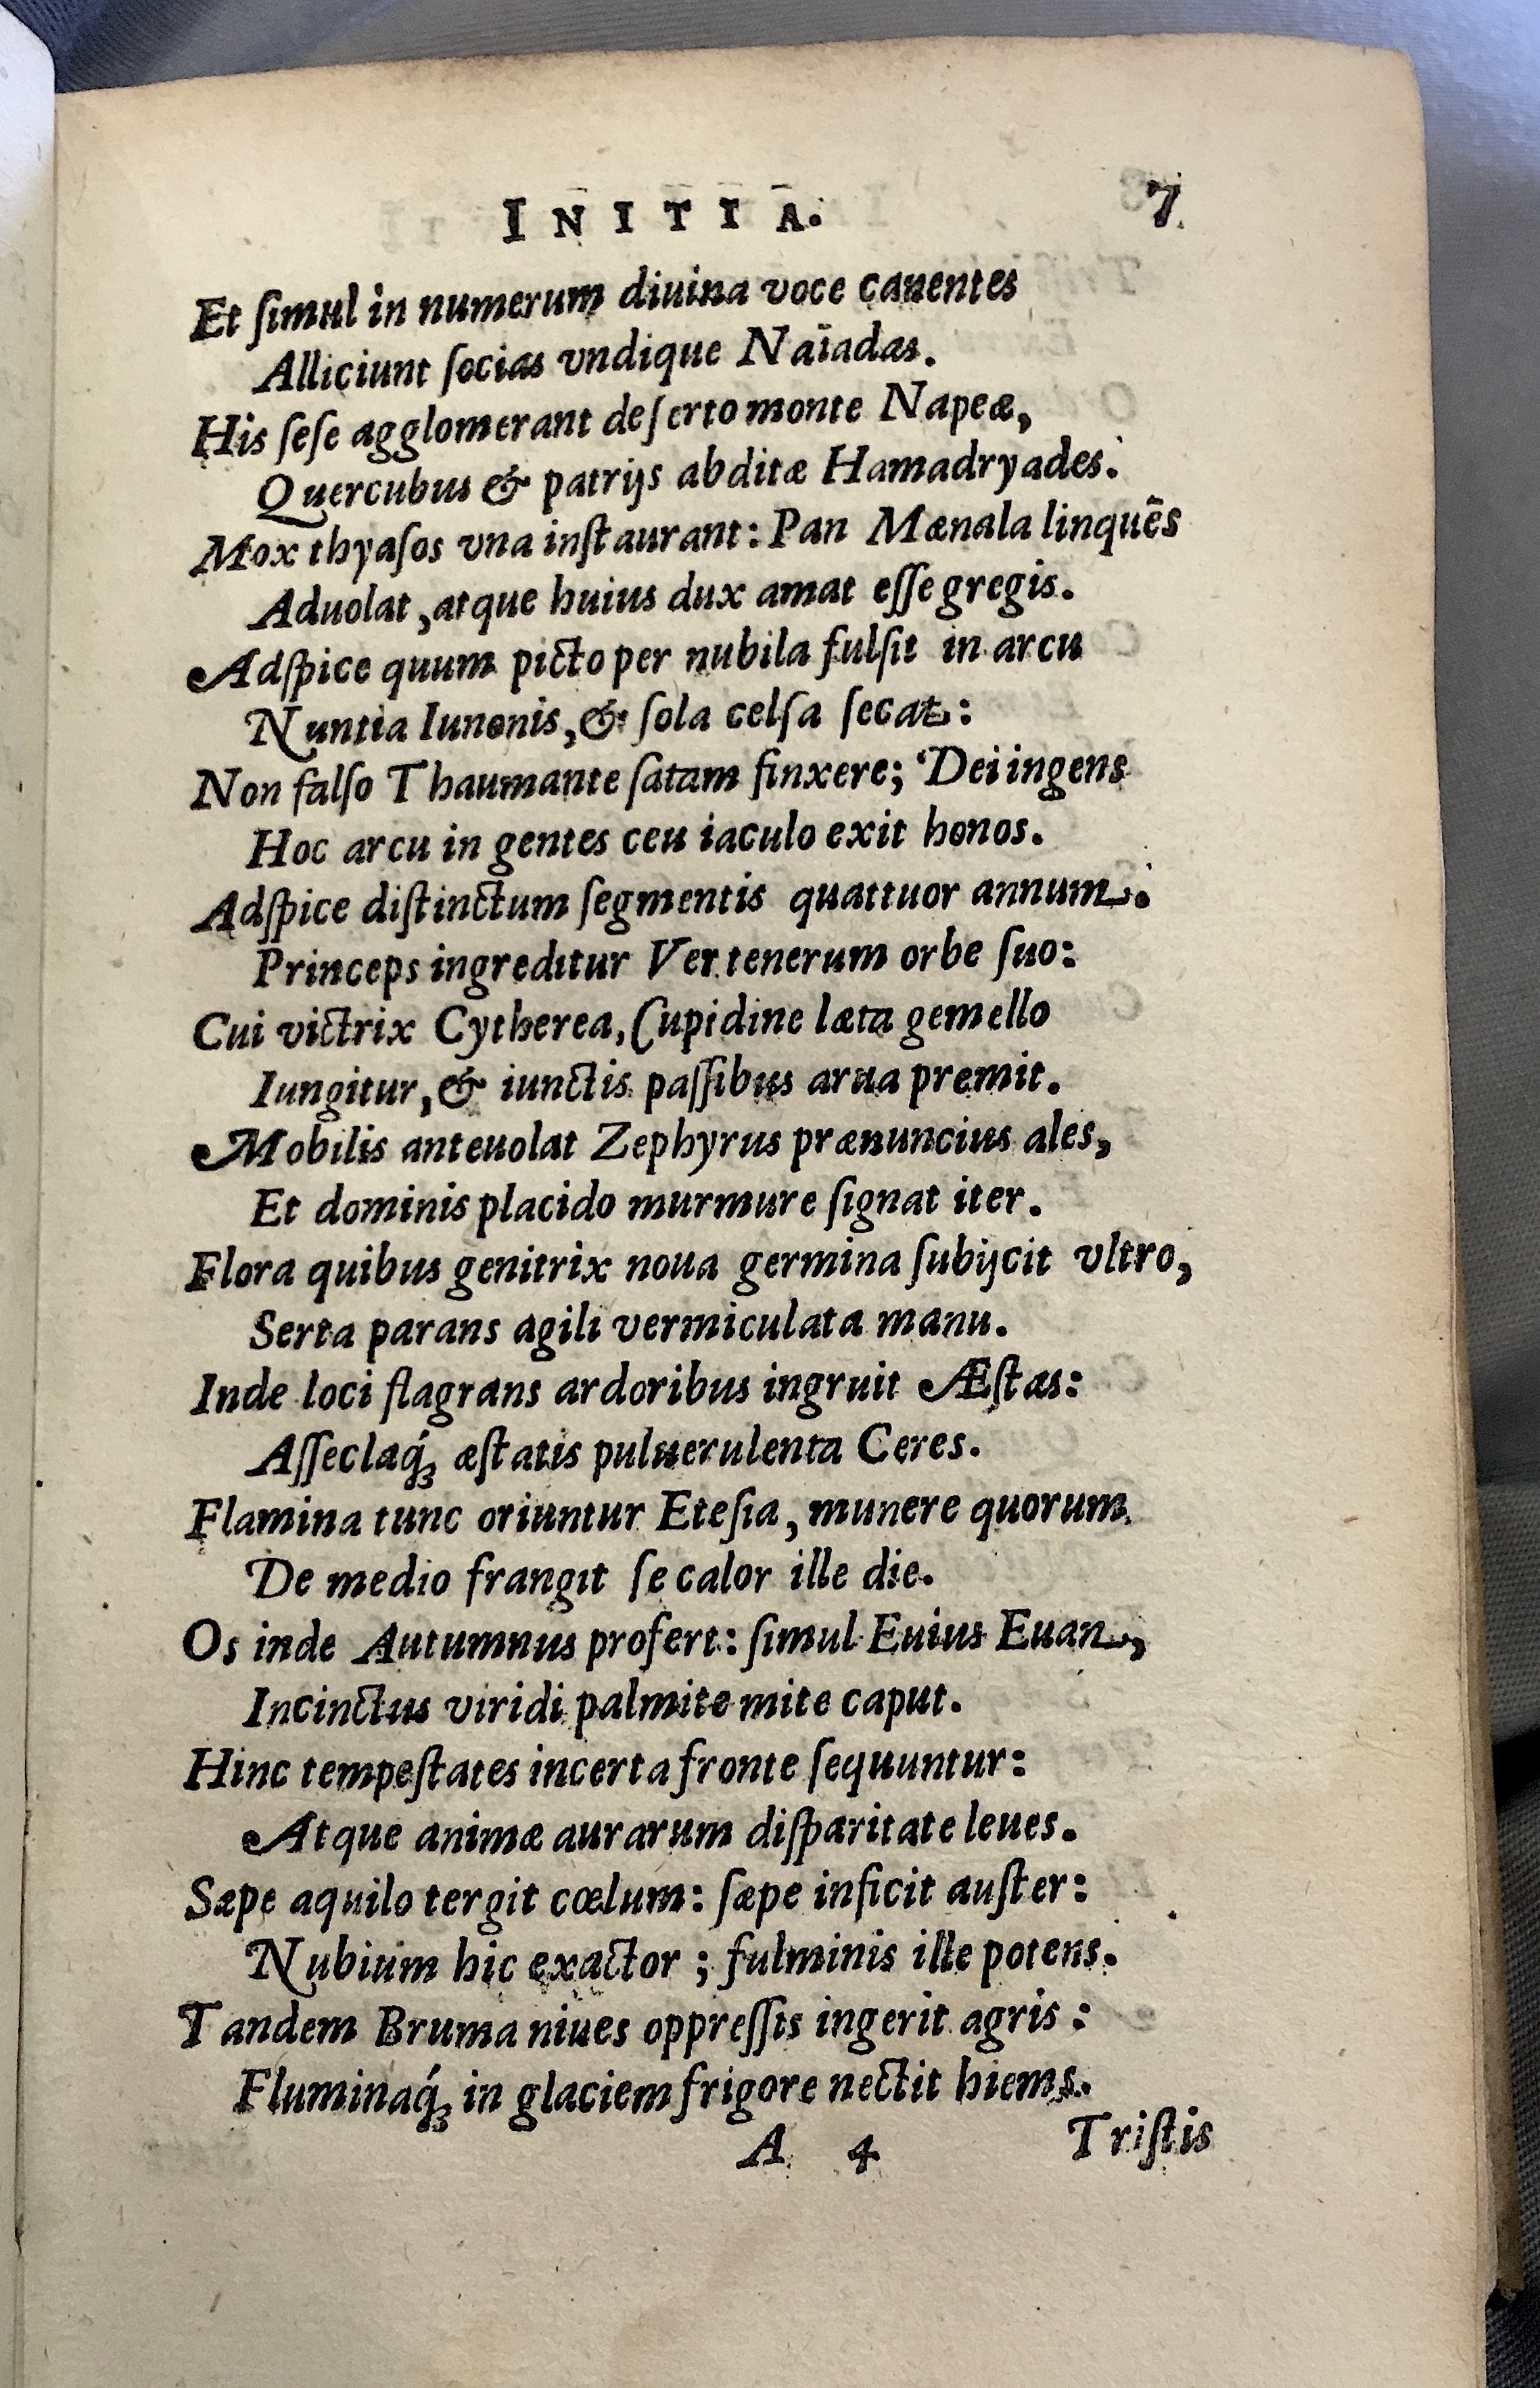 INITIA. 7
Et ſimul in numerum diuina voce canentes
Alliciunt ſocias vndique Naïadas.
His ſeſe agglomerant deſerto monte Napeæ,
Quercubus & patrijs abditæ Hamadryades.
Mox thyaſos vna inſtaurant: Pan Mænala linquēs
Aduolat, atque huius dux amat eſſe gregis.
Adſpice quum picto per nubila fulſit in arcu
Nuntia Iunonis, & ſola celſa ſecat:
Non falſo Thaumante ſatam finxere; Dei ingens
Hoc arcu in gentes ceu iaculo exit honos.
Adſpice diſtinctum ſegmentis quattuor annum.
Princeps ingreditur Ver tenerum orbe ſuo:
Cui victrix Cytherea, Cupidine læta gemello
Iungitur, & iunctis paſſibus arua premit.
Mobilis anteuolat Zephyrus prænuncius ales,
Et dominis placido murmure ſignat iter.
Flora quibus genitrix noua germina ſubijcit vltro,
Serta parans agili vermiculata manu.
Inde loci flagrans ardoribus ingruit Æſtas:
Aſſeclaq́; æſtatis puluerulenta Ceres.
Flamina tunc oriuntur Eteſia, munere quorum
De medio frangit ſe calor ille die.
Os inde Autumnus profert: ſimul Euius Euan,
Incinctus viridi palmite mite caput.
Hinc tempeſtates incerta fronte ſequuntur:
Atque animæ aurarum diſparitate leues.
Sæpe aquilo tergit cœlum: ſæpe inficit auſter:
Nubium hic exactor; fulminis ille potens.
Tandem Bruma niues oppreſſis ingerit agris:
Fluminaq́; in glaciem frigore nectit hiems.
A 4 Triſtis